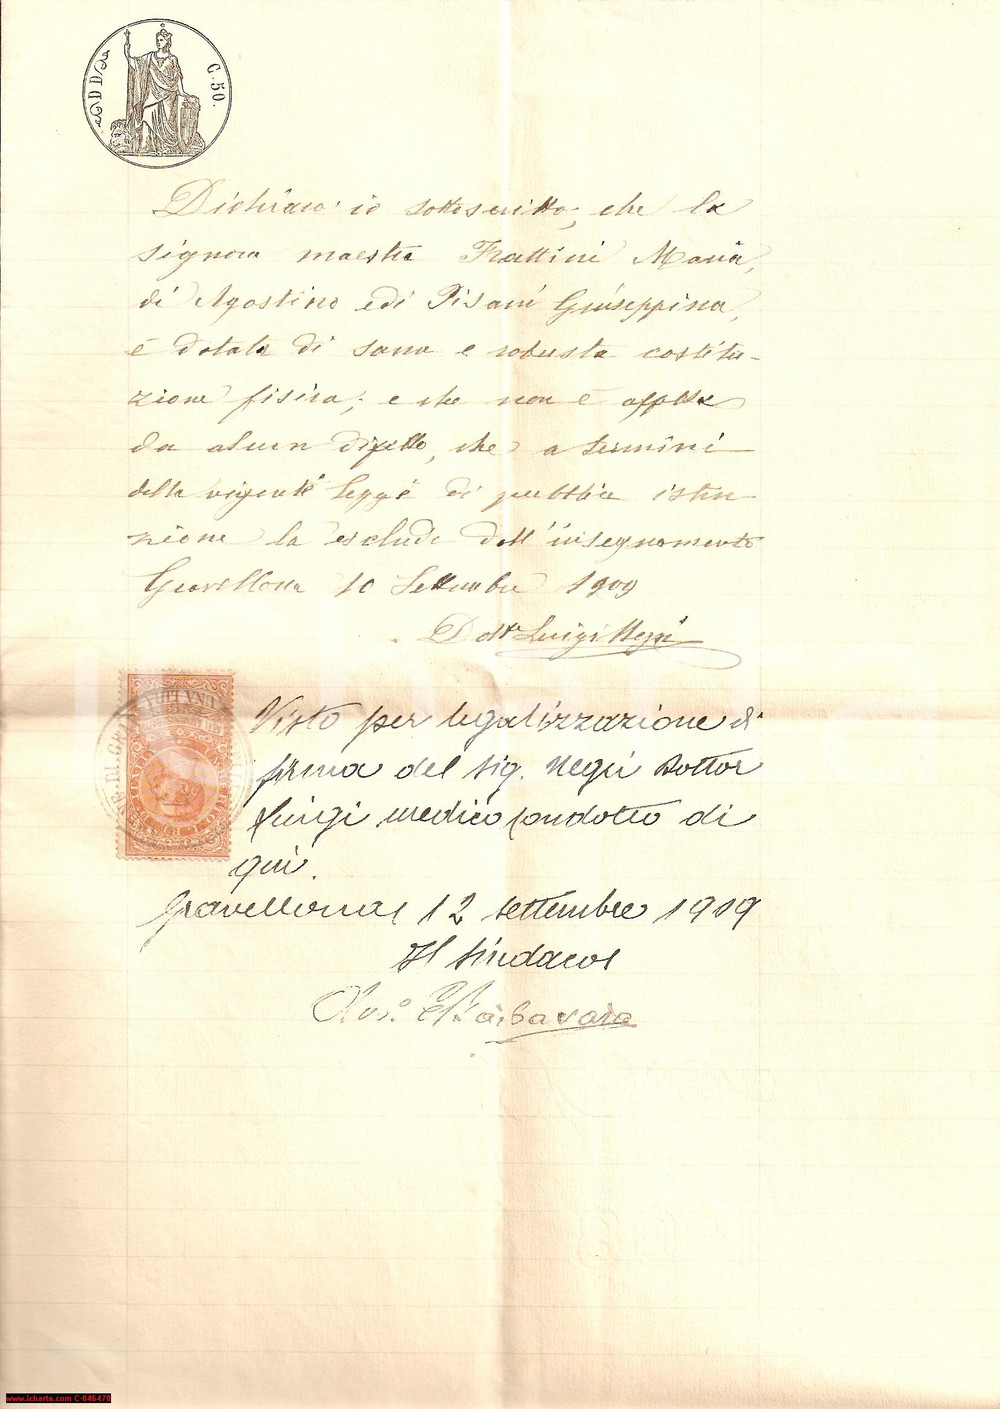 C. 50.
Dichiaro io sottoscritto, che la
signora maestra Frattini Maria,
di Agostino e di Pisani Giuseppina,
è dotata di sana e robusta costitu-
zione fisica; e che non è affetta
da alcun difetto, che a termini
della vigente legge di pubblica istru-
zione la escluda dall'insegnamento
Gravellona 10 Settembre 1909
Dottre Luigi Negri
Visto per legalizzazione di
firma del sig. Negri Dottor
Luigi medico condotto di
qui.
Gravellona, 12 settembre 1909
Il Sindaco
Barbavara
www.icharta.com C-046470